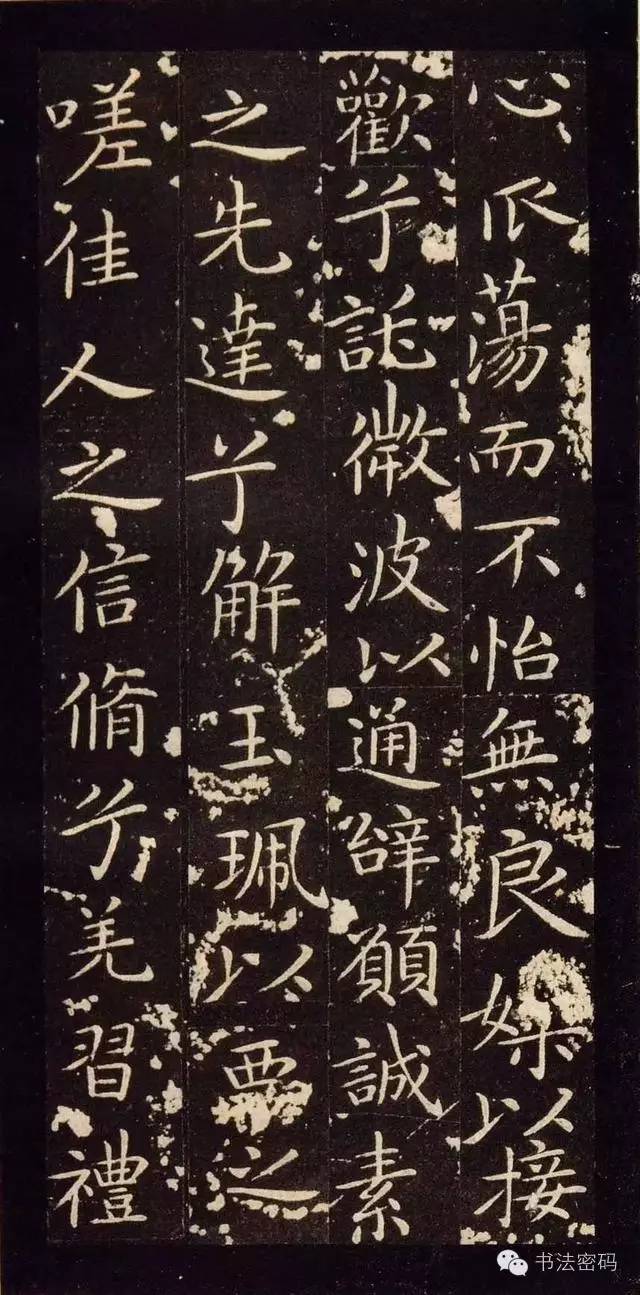 心㧓蕩而不怡無良媒以接
歡兮託微波以通辭願誠素
之先達兮解玉珮以要之
嗟佳人之信脩兮羌習禮
书法密码